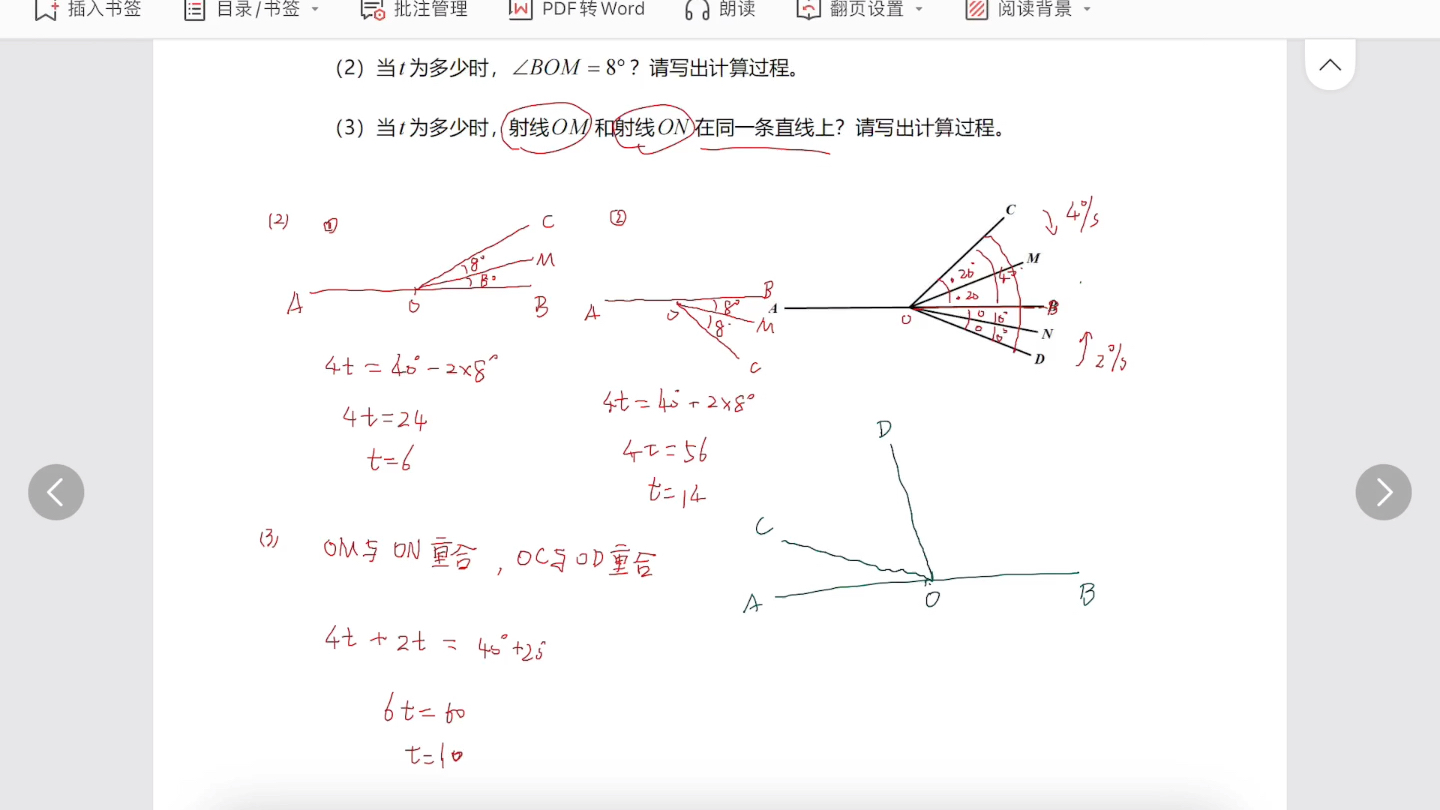 插入书签 目录/书签 批注管理 PDF转Word 朗读 翻页设置 阅读背景
(2) 当t为多少时，∠BOM = 8°？请写出计算过程。
(3) 当t为多少时，射线OM和射线ON在同一条直线上？请写出计算过程。
(2) ①
C
8°
M
8°
A O B
4t = 40° - 2×8°
4t = 24
t = 6
②
B
A O 8°
8° M
C
4t = 40° + 2×8°
4t = 56
t = 14
C 4°/s
M
20°
20
A O B
10°
N
10°
D 2°/s
D
C
A O B
(3) OM与ON重合，OC与OD重合
4t + 2t = 40° + 20°
6t = 60
t = 10